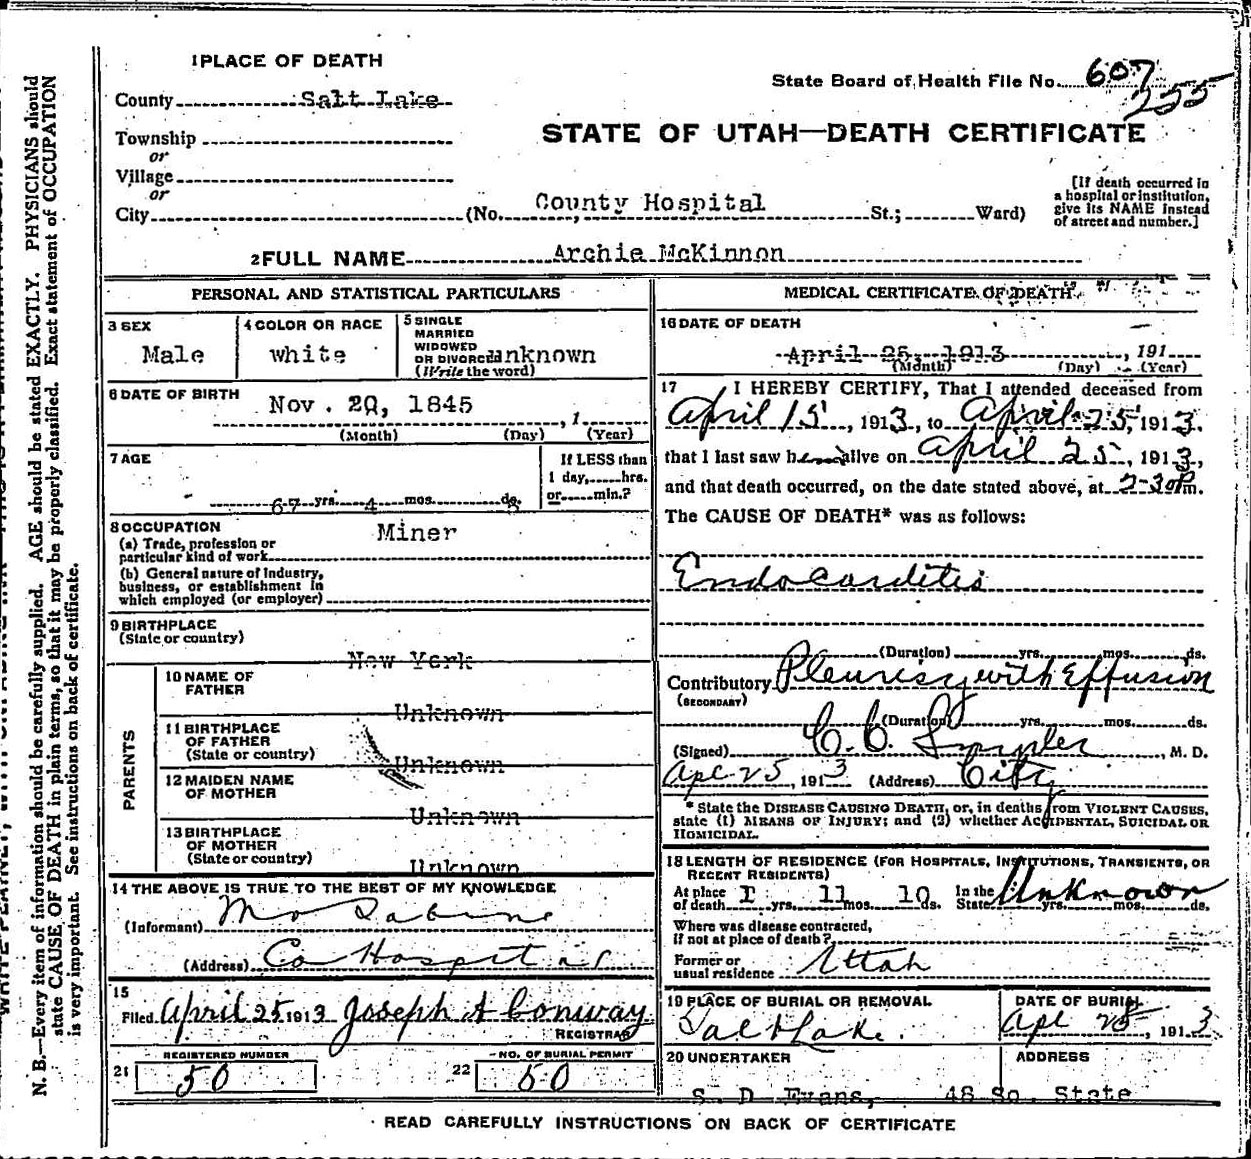 1 PLACE OF DEATH
State Board of Health File No. 607
255
County Salt Lake
STATE OF UTAH—DEATH CERTIFICATE
Township
or
Village
or
City (No. County Hospital St.; Ward)
[If death occurred in
a hospital or institution,
give its NAME instead
of street and number.]
2 FULL NAME Archie McKinnon
PERSONAL AND STATISTICAL PARTICULARS
3 SEX
Male
4 COLOR OR RACE
white
5 SINGLE
MARRIED
WIDOWED
OR DIVORCED unknown
(Write the word)
6 DATE OF BIRTH
Nov. 20, 1845 , 1
(Month) (Day) (Year)
7 AGE
67 yrs. 4 mos. ds.
If LESS than
1 day, hrs.
or min.?
8 OCCUPATION
Miner
(a) Trade, profession or
particular kind of work
(b) General nature of Industry,
business, or establishment in
which employed (or employer)
9 BIRTHPLACE
(State or country)
New York
PARENTS
10 NAME OF
FATHER
Unknown
11 BIRTHPLACE
OF FATHER
(State or country)
Unknown
12 MAIDEN NAME
OF MOTHER
Unknown
13 BIRTHPLACE
OF MOTHER
(State or country)
Unknown
14 THE ABOVE IS TRUE TO THE BEST OF MY KNOWLEDGE
(Informant)
(Address) Co Hospital
15
Filed April 25 1913 Joseph A Conway
REGISTRAR
REGISTERED NUMBER
21 50
NO. OF BURIAL PERMIT
22 50
MEDICAL CERTIFICATE OF DEATH
16 DATE OF DEATH
April 25, 1913 , 191
(Month) (Day) (Year)
17 I HEREBY CERTIFY, That I attended deceased from
April 15, 1913, to April 25, 1913.
that I last saw h alive on April 25, 1913,
and that death occurred, on the date stated above, at 2-30 P m.
The CAUSE OF DEATH* was as follows:
Endocarditis
(Duration) yrs. mos. ds.
Contributory Pleurisy with Effusion
(SECONDARY)
(Duration) yrs. mos. ds.
(Signed) C. C. , M. D.
Apr 25, 1913 (Address) City
* State the DISEASE CAUSING DEATH, or, in deaths from VIOLENT CAUSES,
state (1) MEANS OF INJURY; and (2) whether ACCIDENTAL, SUICIDAL OR
HOMICIDAL.
18 LENGTH OF RESIDENCE (FOR HOSPITALS, INSTITUTIONS, TRANSIENTS, OR
RECENT RESIDENTS)
At place
of death I yrs. 11 mos. 10 ds.
In the
State Unknown yrs. mos. ds.
Where was disease contracted,
if not at place of death?
Former or
usual residence Utah
19 PLACE OF BURIAL OR REMOVAL
Salt Lake.
DATE OF BURIAL
Apr 28, 1913
20 UNDERTAKER
S. D Evans,
ADDRESS
48 So. State
READ CAREFULLY INSTRUCTIONS ON BACK OF CERTIFICATE
N. B.—Every item of information should be carefully supplied. AGE should be stated EXACTLY. PHYSICIANS should
state CAUSE OF DEATH in plain terms, so that it may be properly classified. Exact statement of OCCUPATION
is very important. See instructions on back of certificate.